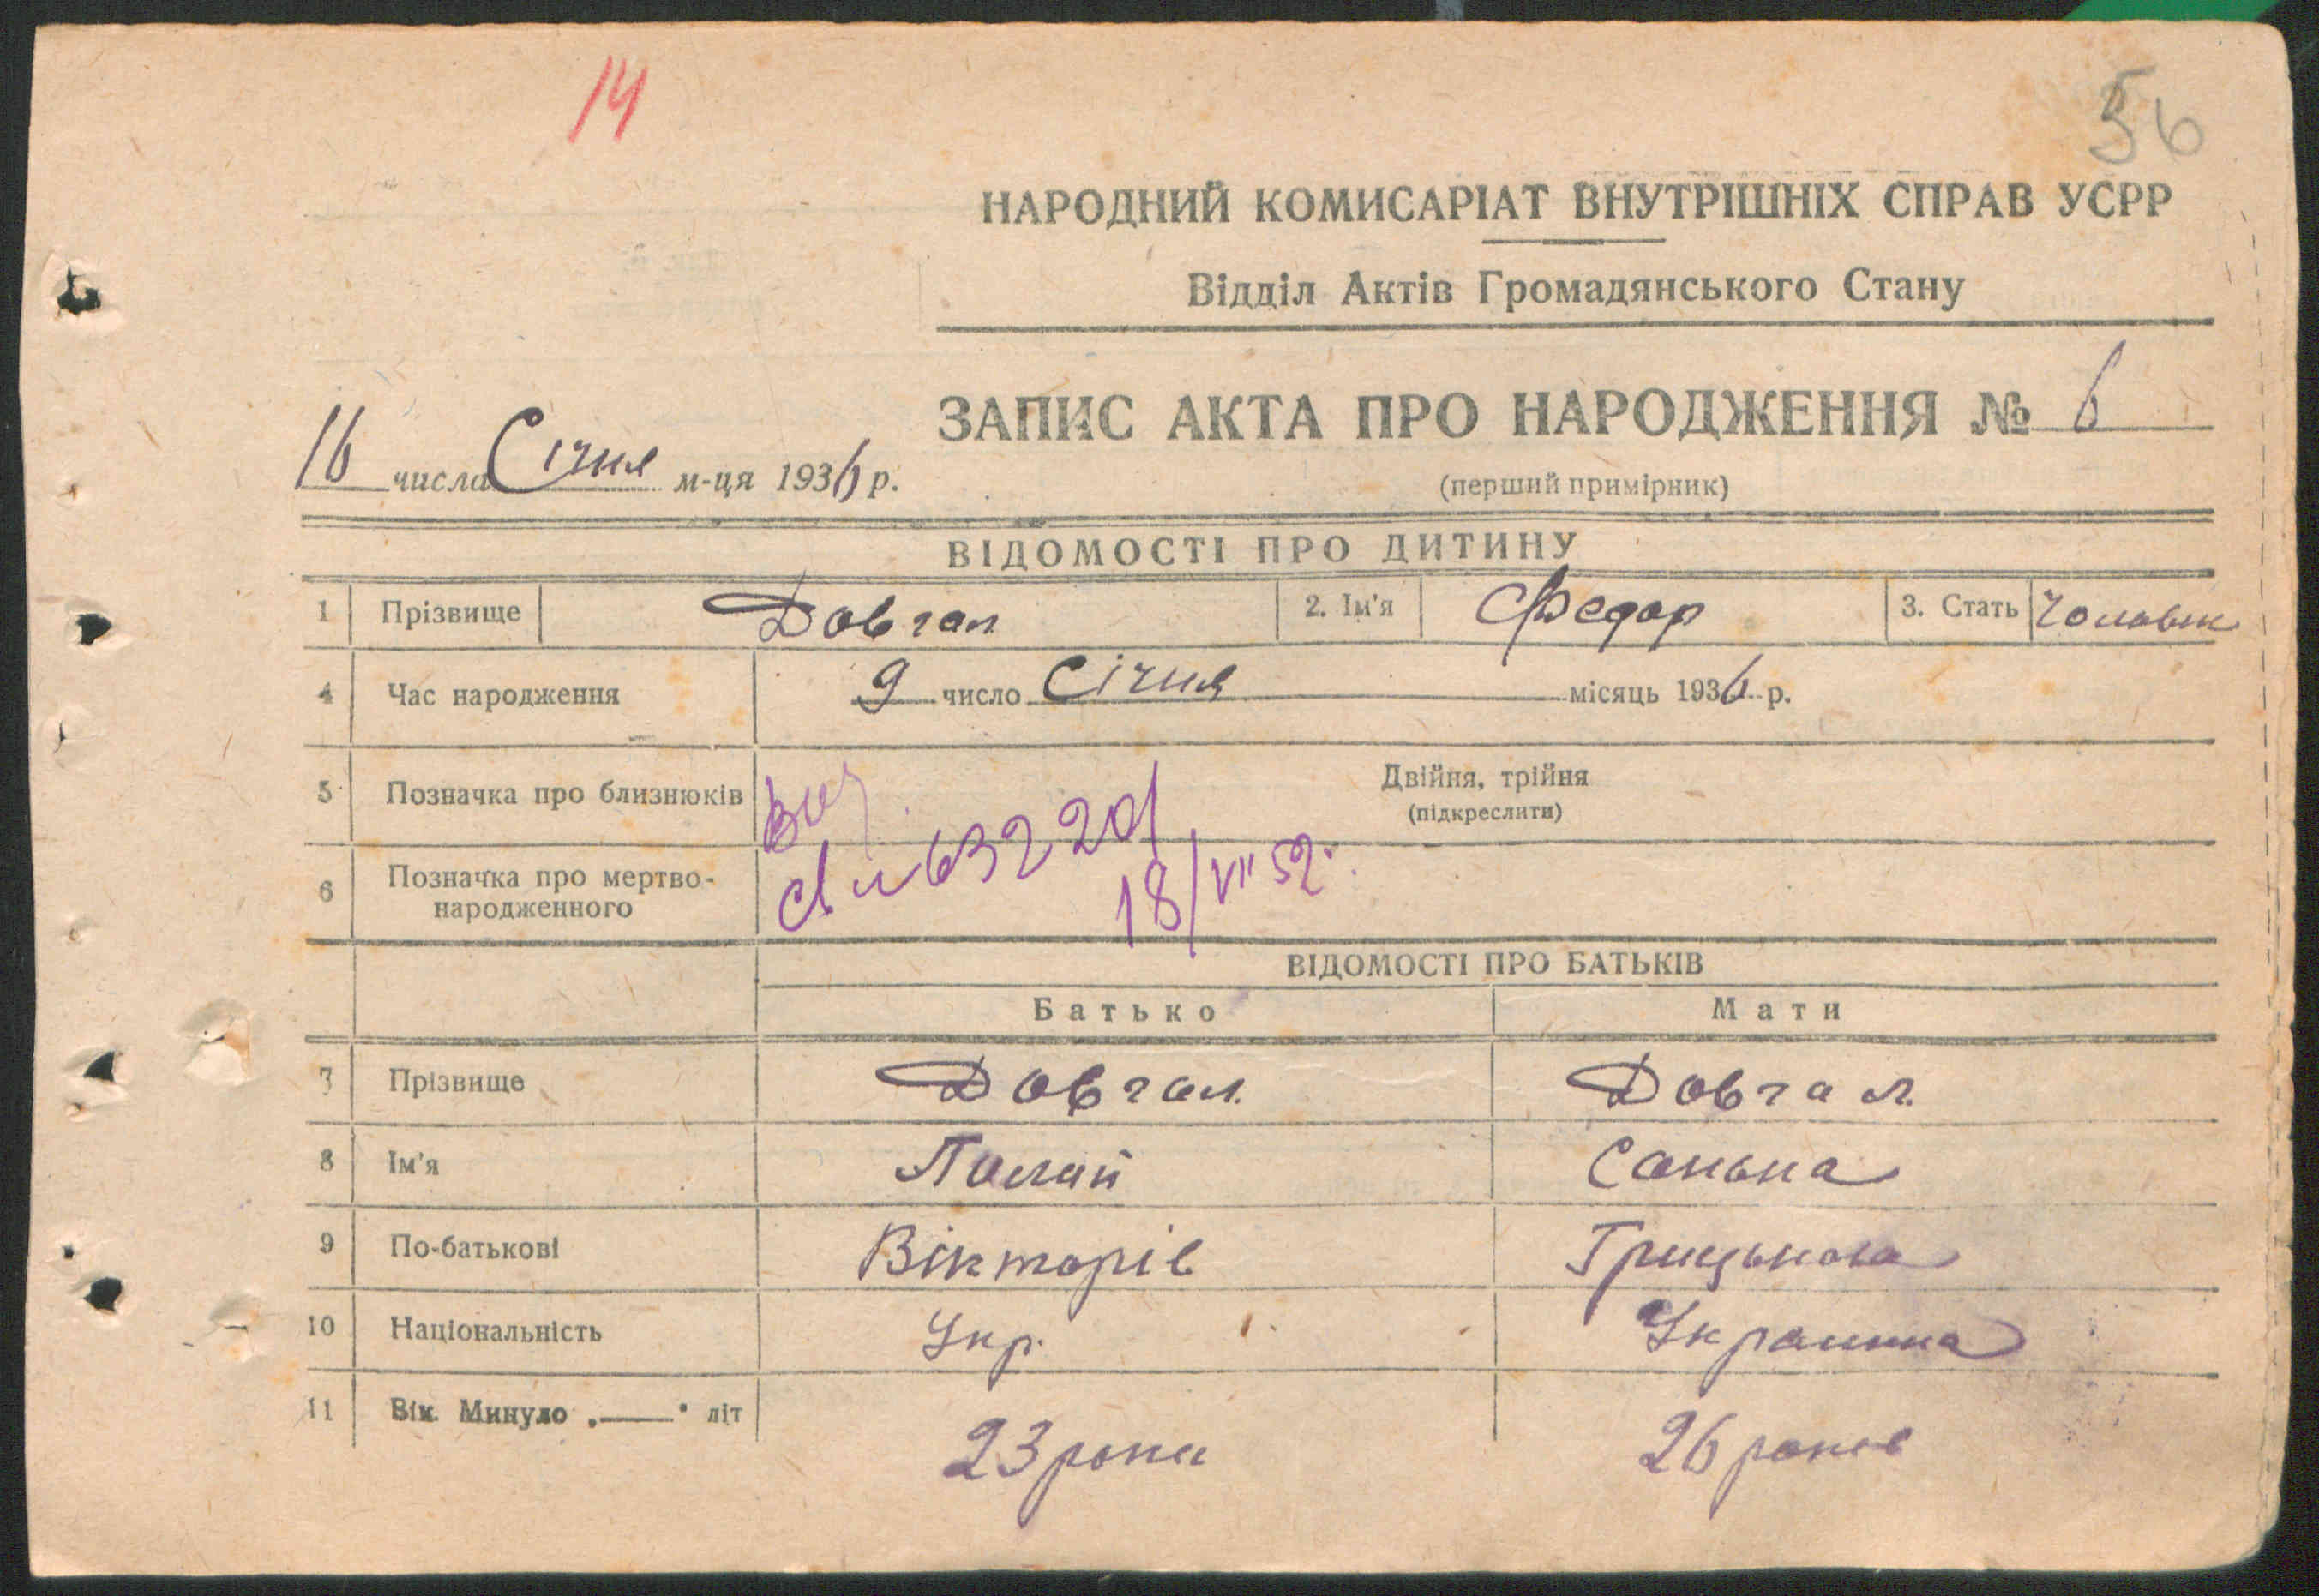 14
56
НАРОДНИЙ КОМИСАРІАТ ВНУТРІШНІХ СПРАВ УСРР
Відділ Актів Громадянського Стану
ЗАПИС АКТА ПРО НАРОДЖЕННЯ № 6
16 числа Січня м-ця 1936 р.
(перший примірник)
ВІДОМОСТІ ПРО ДИТИНУ
1 Прізвище Довгал 2. Ім'я Федор 3. Стать Чоловік
4 Час народження 9 число Січня місяць 1936 р.
5 Позначка про близнюків Двійня, трійня
(підкреслити)
63220
6 Позначка про мертво-
народженного
18/VII 52.
ВІДОМОСТІ ПРО БАТЬКІВ
Батько Мати
7 Прізвище Довгал Довгал
8 Ім'я Палій Санька
9 По-батькові Вікторів Грицькова
10 Національність Укр. Украинка
11 Вік. Минуло „——" літ
23 роки 26 років